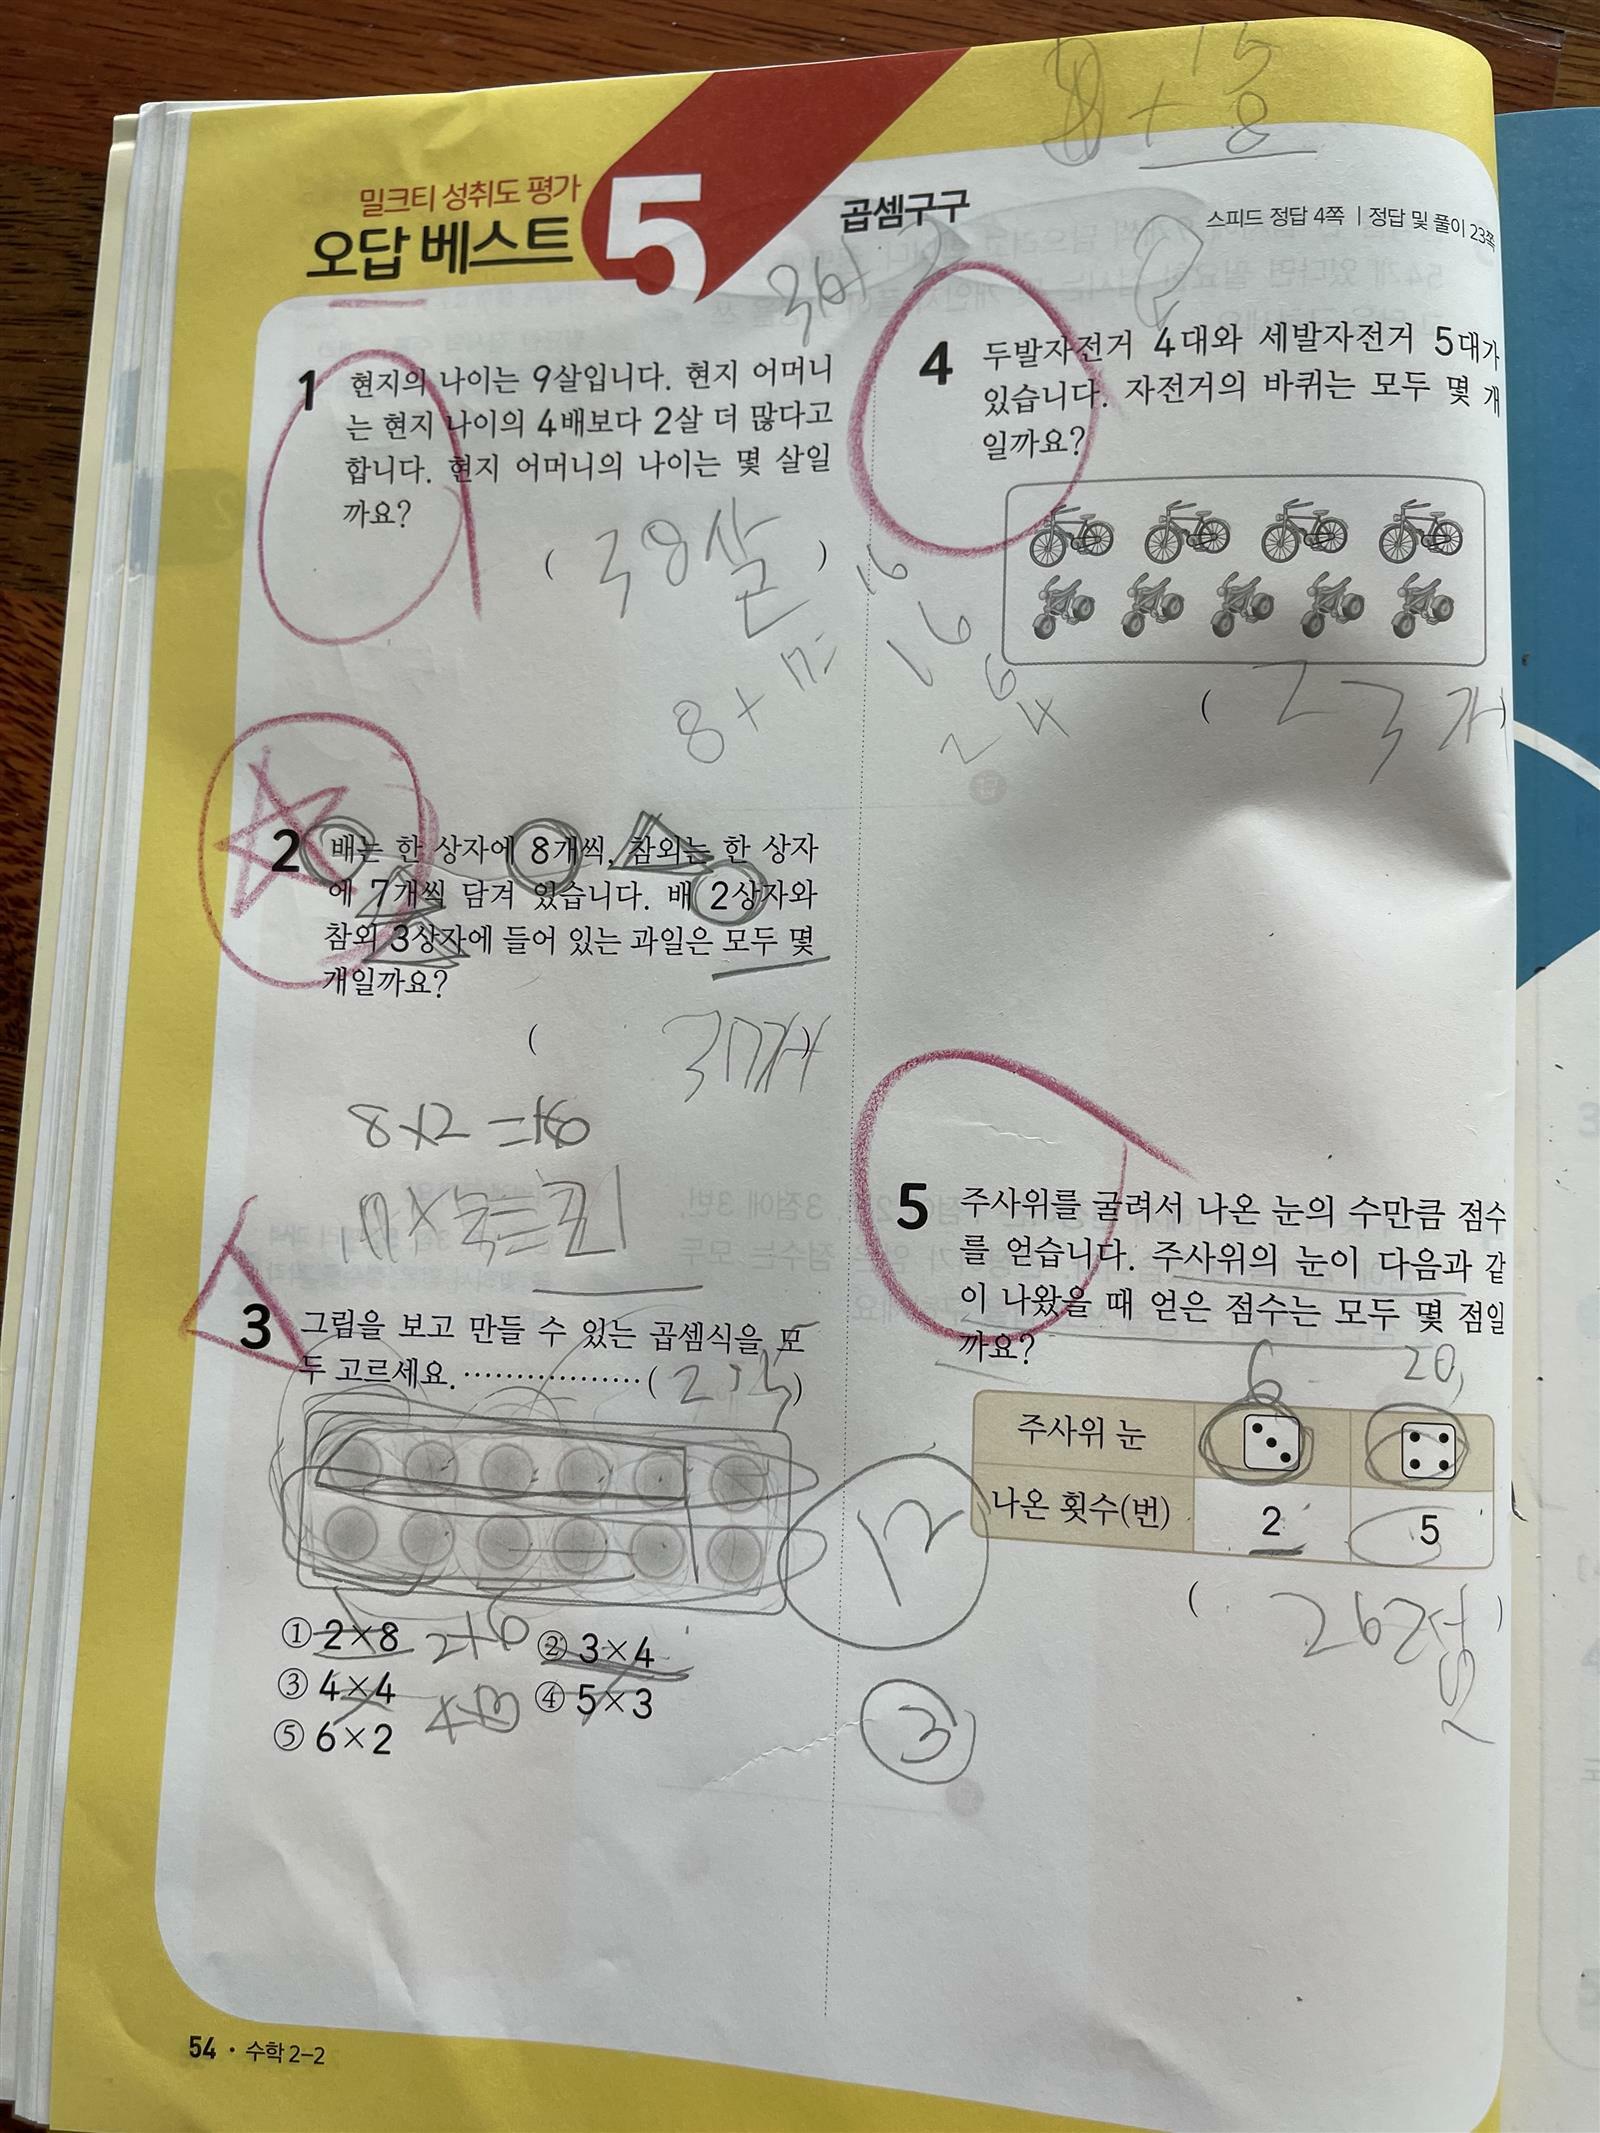 밀크티 성취도 평가
오답 베스트 5
곱셈구구
스피드 정답 4쪽 | 정답 및 풀이 23쪽
1 현지의 나이는 9살입니다. 현지 어머니
는 현지 나이의 4배보다 2살 더 많다고
합니다. 현지 어머니의 나이는 몇 살일
까요?
( 38살 )
8×7=
16
16
2 배는 한 상자에 8개씩, 참외는 한 상자
에 7개씩 담겨 있습니다. 배 2상자와
참외 3상자에 들어 있는 과일은 모두 몇
개일까요?
( 37개 )
8×2=16
7×3=21
3 그림을 보고 만들 수 있는 곱셈식을 모
두 고르세요. ( 2, 5 )
12
① 2×8 2×6 ② 3×4
③ 4×4 4×3 ④ 5×3
⑤ 6×2
3
4 두발자전거 4대와 세발자전거 5대가
있습니다. 자전거의 바퀴는 모두 몇 개
일까요?
( 23개 )
5 주사위를 굴려서 나온 눈의 수만큼 점수
를 얻습니다. 주사위의 눈이 다음과 같
이 나왔을 때 얻은 점수는 모두 몇 점일
까요?
6 20
주사위 눈
나온 횟수(번) 2 5
( 26점 )
54 · 수학 2-2